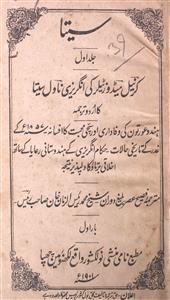 سیتا
جلد اول
کرنیل میڈوز ٹیلر کی انگریزی ناول سیتا
کا اردو ترجمہ
ہندو عورتوں کی وفاداری اور سچی محبت کا افسانہ سنہ ۱۸۵۷ء کے
غدر کے تاریخی حالات۔ حکام انگریزی کے ہندوستانی رعایا کے ساتھ
اخلاقی برتاؤ کا دلپذیر نتیجہ
مترجمہ فصیح عصر بلیغ دوران شیخ محمد یونس خان صاحب رئیس
بار اول
مطبع نامی منشی نولکشور واقع لکھنؤ میں چھپا
۱۹۰۱ء